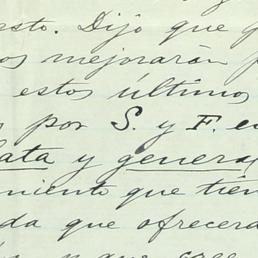 esto. Dijo que
os mejorarán
estos últimos
por S. y F. e
lata y genera
miento que tien
da que ofrecerá